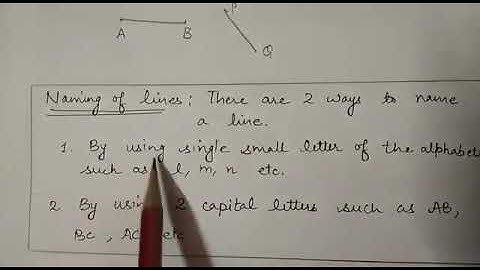 A B
P
Q
Naming of lines: There are 2 ways to name
a line.
1. By using single small letter of the alphabets
such as l, m, n etc.
2. By using 2 capital letters such as AB,
BC, AC etc